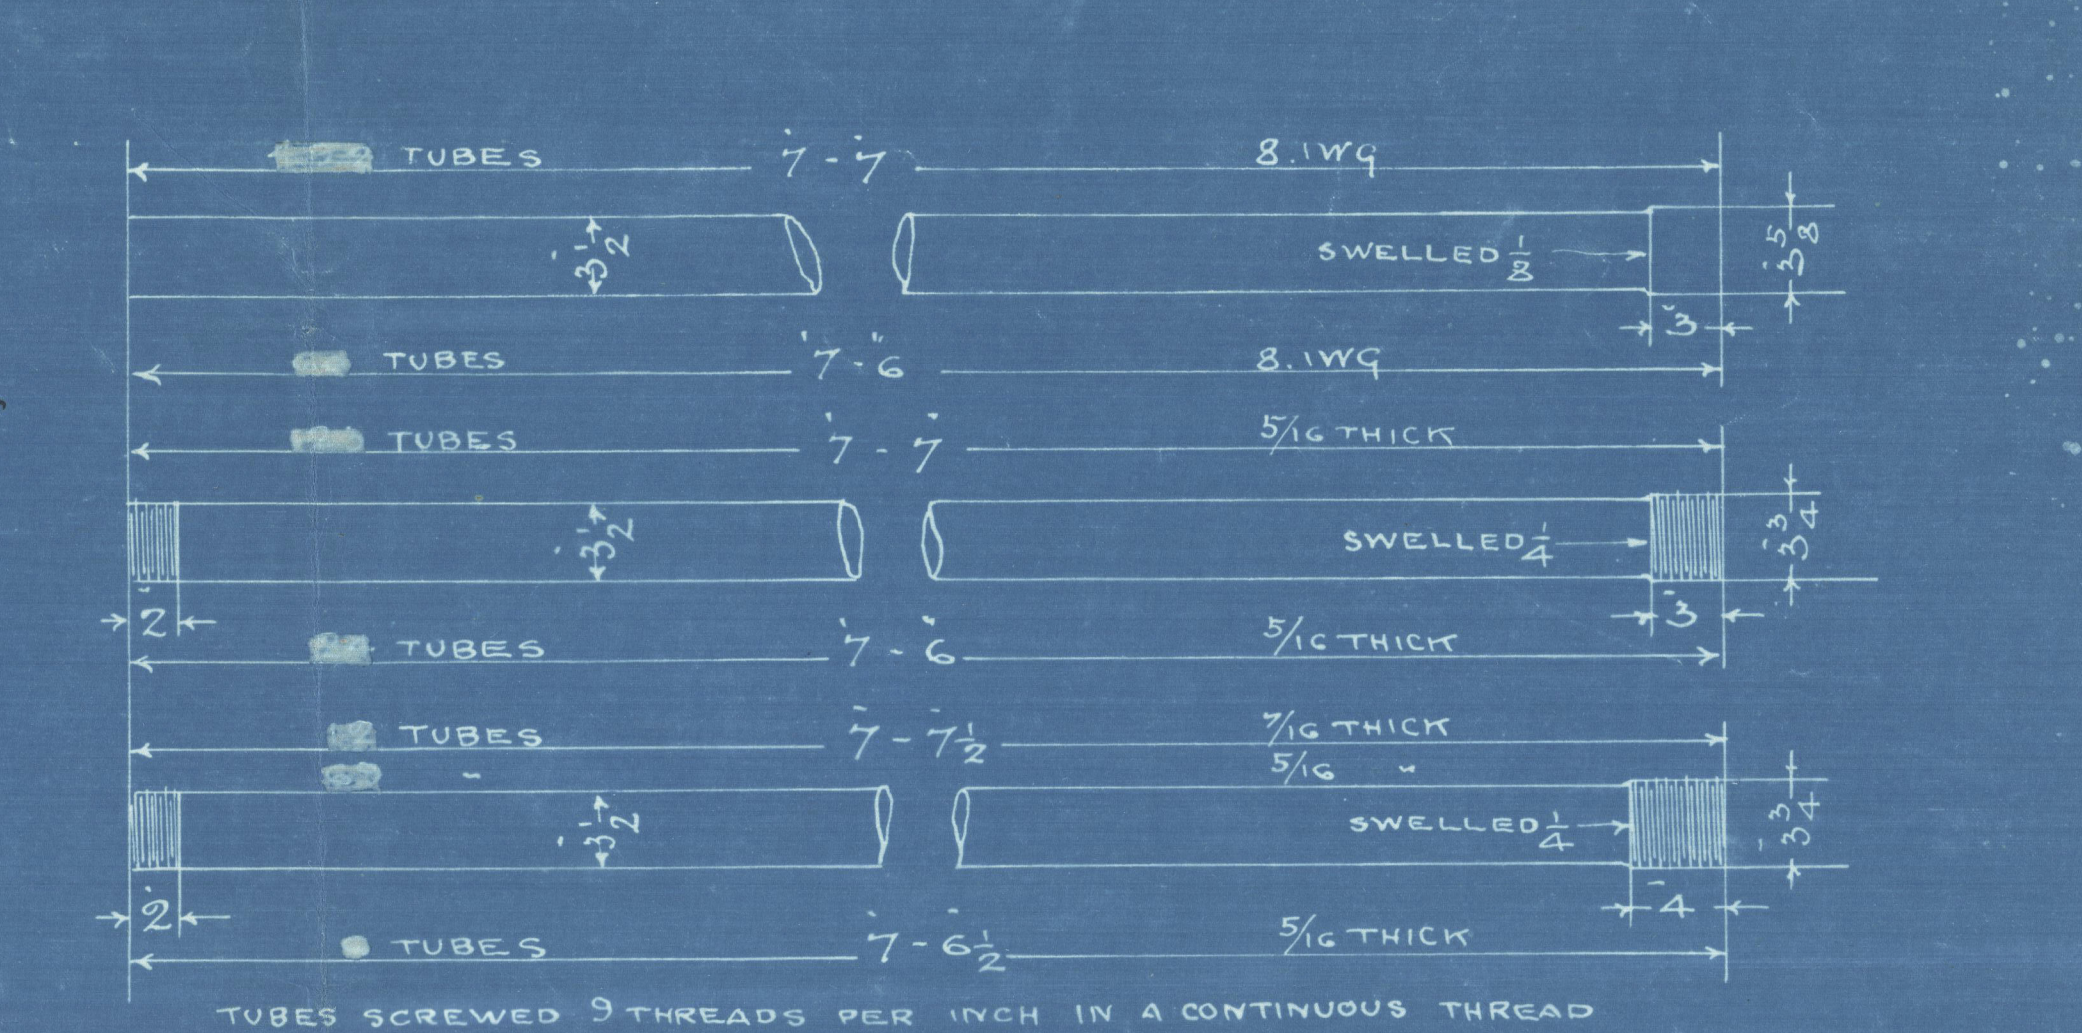 TUBES 7'-7" 8.IWG
3 1/2
SWELLED 1/8
3 5/8
3"
TUBES 7'-6" 8.IWG
TUBES 7'-7" 5/16 THICK
3 1/2
SWELLED 1/4
3 3/4
2" 3"
TUBES 7'-6" 5/16 THICK
TUBES 7'-7 1/2 7/16 THICK
" 5/16 "
3 1/2
SWELLED 1/4
3 3/4
2" 4"
TUBES 7'-6 1/2 5/16 THICK
TUBES SCREWED 9 THREADS PER INCH IN A CONTINUOUS THREAD